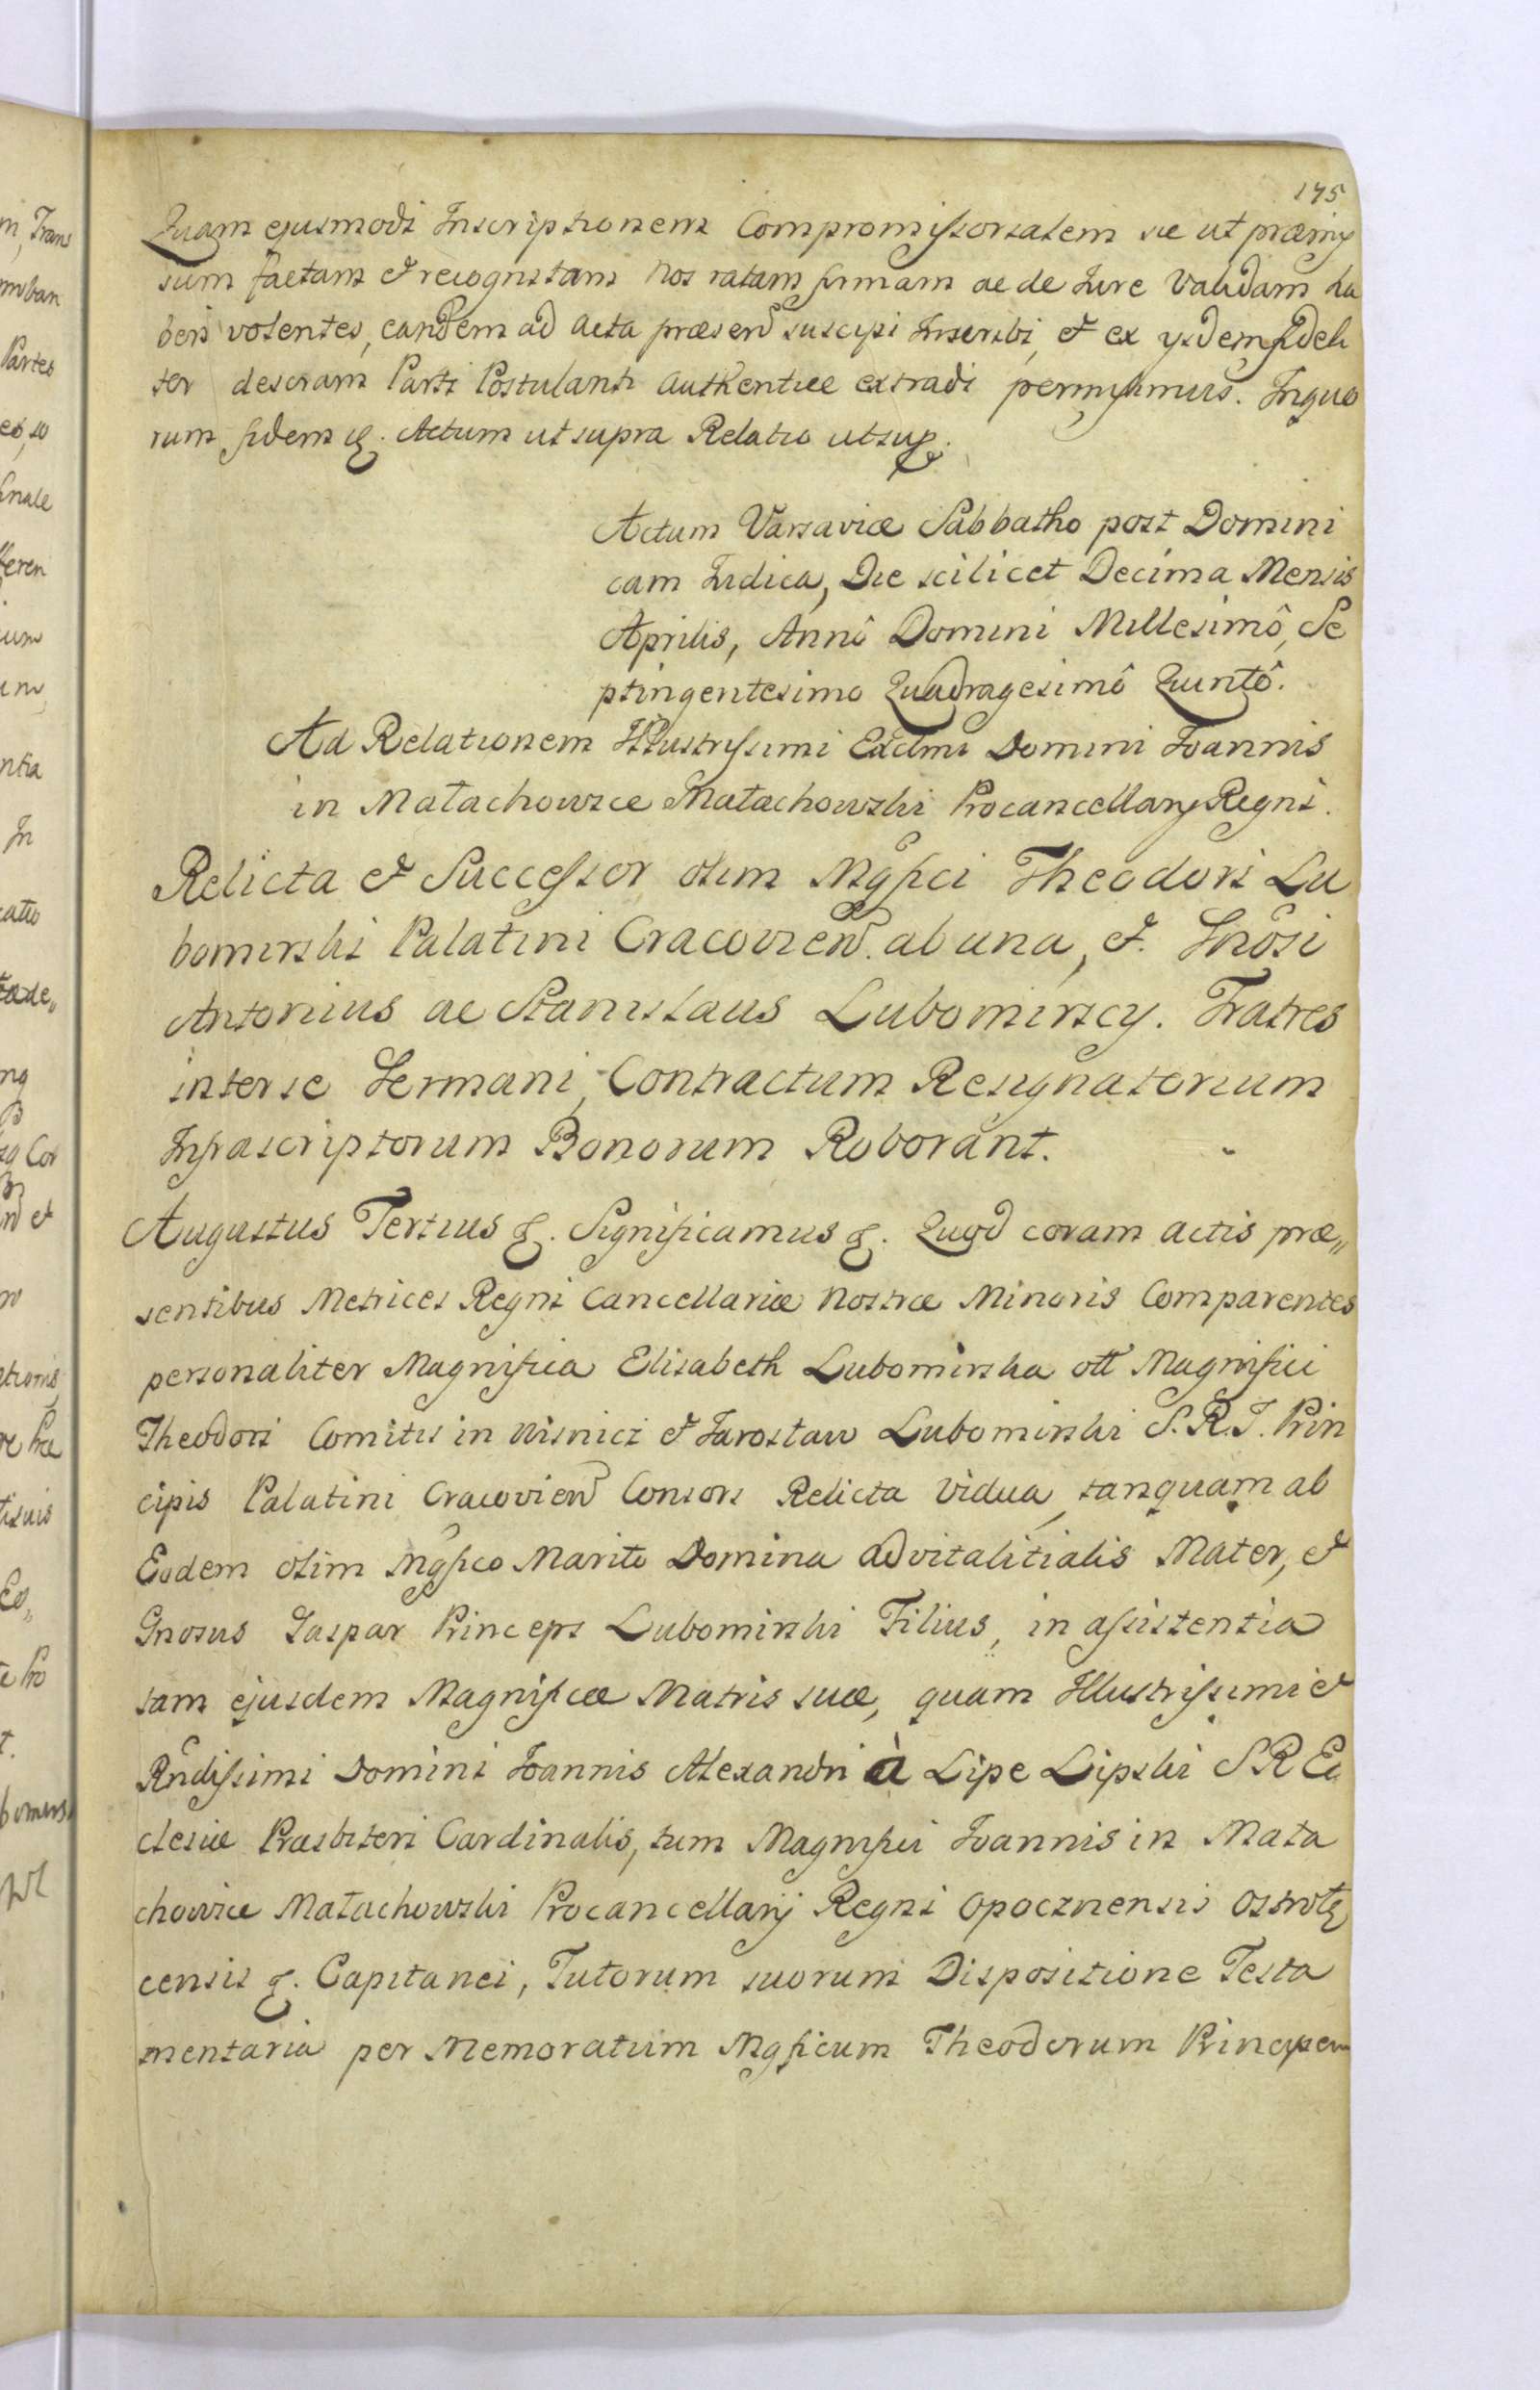 175
Quam ejusmodi Inscriptionem Compromissorialem sic ut præmis
sum factam et recognitam Nos ratam firmam ac de Jure Validam ha
beri volentes, eandem ad Acta præsen suscipi Inscribi, et ex ysdem fideli
ter descriam Parti Postulanti Authentice extradi permisimus. In quo
rum fidem &. Actum ut supra Relatio ut sup.
Actum Varsaviæ Sabbatho post Domini
cam Judica, Die scilicet Decima Mensis
Aprilis, Annô Domini Millesimô, Se
ptingentesimo Quadragesimô Quintô.
Ad Relationem Illustrissimi Exclmi Domini Joannis
in Małachowice Małachowski Procancellarij Regni.
Relicta et Successor olim Mgfici Theodori Lu
bomirski Palatini Cracovien. ab una, et Gnosi
Antonius ac Stanislaus Lubomirscy. Fratres
inter se Germani, Contractum Resignatorium
Infrascriptorum Bonorum Roborant.
Augustus Tertius &. Significamus &. Quod coram actis præ„
sentibus Metrices Regni Cancellariæ Nostræ Minoris Comparentes
personaliter Magnifica Elisabeth Lubomirska oll Magnifici
Theodori Comitis in Wisnicz et Jarosław Lubomirski S. R. I. Prin
cipis Palatini Cracovien Consors Relicta Vidua, tanquam ab
Eodem olim Mgfico Marito Domina advitalitialis Mater, et
Gnosus Gaspar Princeps Lubomirski Filius, in assistentia
tam ejusdem Magnificæ Matris suæ, quam Illustrissimi et
Rndissimi Domini Joannis Alexandri à Lipe Lipski S R Ec
clesiæ Præsbiteri Cardinalis, tum Magnifici Joannis in Mała
chowice Małachowski Procancellarij Regni Opocznensis Ostrołę
censis &. Capitanei, Tutorum suorum Dispositione Testa
mentaria per Memoratum Mgficum Theodorum Principem